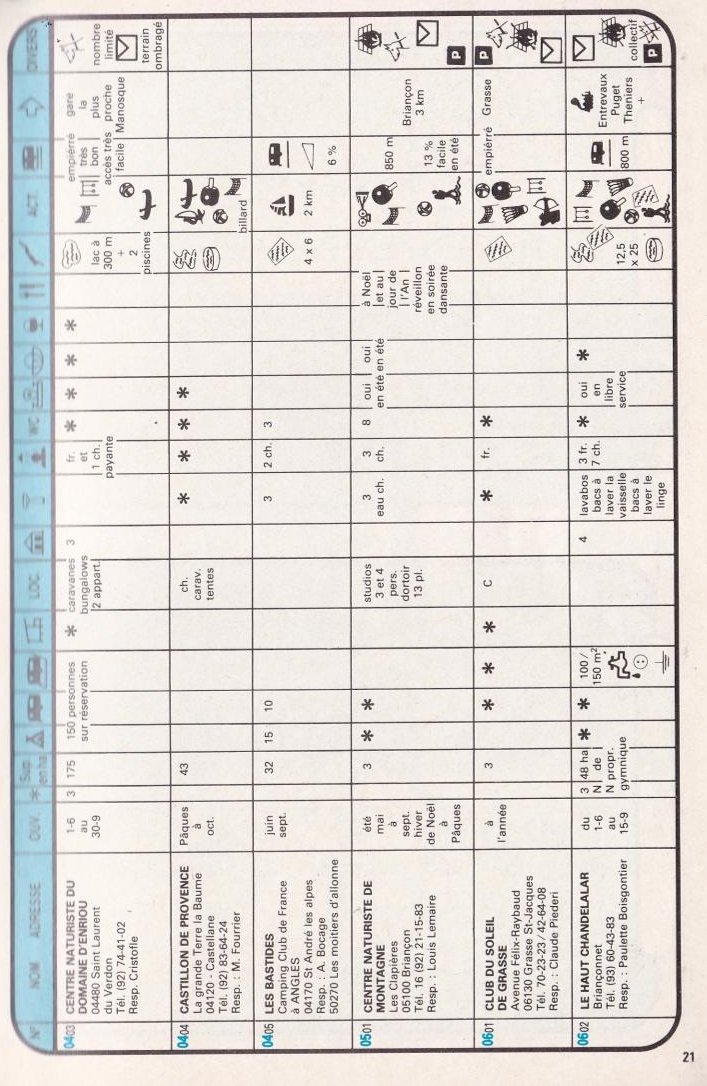 N° NOM ADRESSE OUV. * Sup. en ha LOC. WC ACT. DIVERS
0403 CENTRE NATURISTE DU
DOMAINE D'ENRIOU
04480 Saint Laurent
du Verdon
Tél. (92) 74-41-02
Resp. Cristofle
1-6
au
30-9
3
175
150 personnes
sur réservation
*
caravanes
bungalows
2 appart.
3
fr.
et
1 ch.
payante
* * * *
lac à
300 m
+
2
piscines
empiérré
très
bon
accès très
facile
gare
la
plus
proche
Manosque
nombre
limité
terrain
ombragé
0404 CASTILLON DE PROVENCE
La grande Terre la Baume
04120 - Castellane
Tél. (92) 83-64-24
Resp. : M. Fourrier
Pâques
à
oct.
43
ch.
carav.
tentes
* * * *
billard
0405 LES BASTIDES
Camping Club de France
à ANGLES
04170 St André les alpes
Resp. : A. Bocage
50270 Les moitiers d'allonne
juin
sept.
32
15
10
3
2 ch.
3
4 x 6
2 km
6 %
0501 CENTRE NATURISTE DE
MONTAGNE
Les Clapières
05100 Briançon
Tél. 16 (92) 21-15-83
Resp. : Louis Lemaire
été
mai
à
sept.
hiver
de Noël
à
Pâques
3
* *
studios
3 et 4
pers.
dortoir
13 pl.
3
eau ch.
3
ch.
8
oui
en été
oui
en été
à Noël
et au
jour de
l'An
réveillon
en soirée
dansante
850 m
13 %
facile
en été
Briançon
3 km
P
0601 CLUB DU SOLEIL
DE GRASSE
Avenue Félix-Raybaud
06130 Grasse St-Jacques
Tél. 70-23-23 / 42-64-08
Resp. : Claude Piederi
à
l'année
3
* * *
C
*
fr.
*
empiérré
Grasse
P
0602 LE HAUT CHANDELALAR
Briançonnet
Tél. (93) 60-43-83
Resp. : Paulette Boisgontier
du
1-6
au
15-9
3
N
N
48 ha
de
propr.
gymnique
* *
100/
150 m²
4
lavabos
bacs à
laver la
vaisselle
bacs à
laver le
linge
3 fr.
7 ch.
*
oui
en
libre
service
*
12,5
x 25
800 m
Entrevaux
Puget
Theniers
+
collectif
P
21